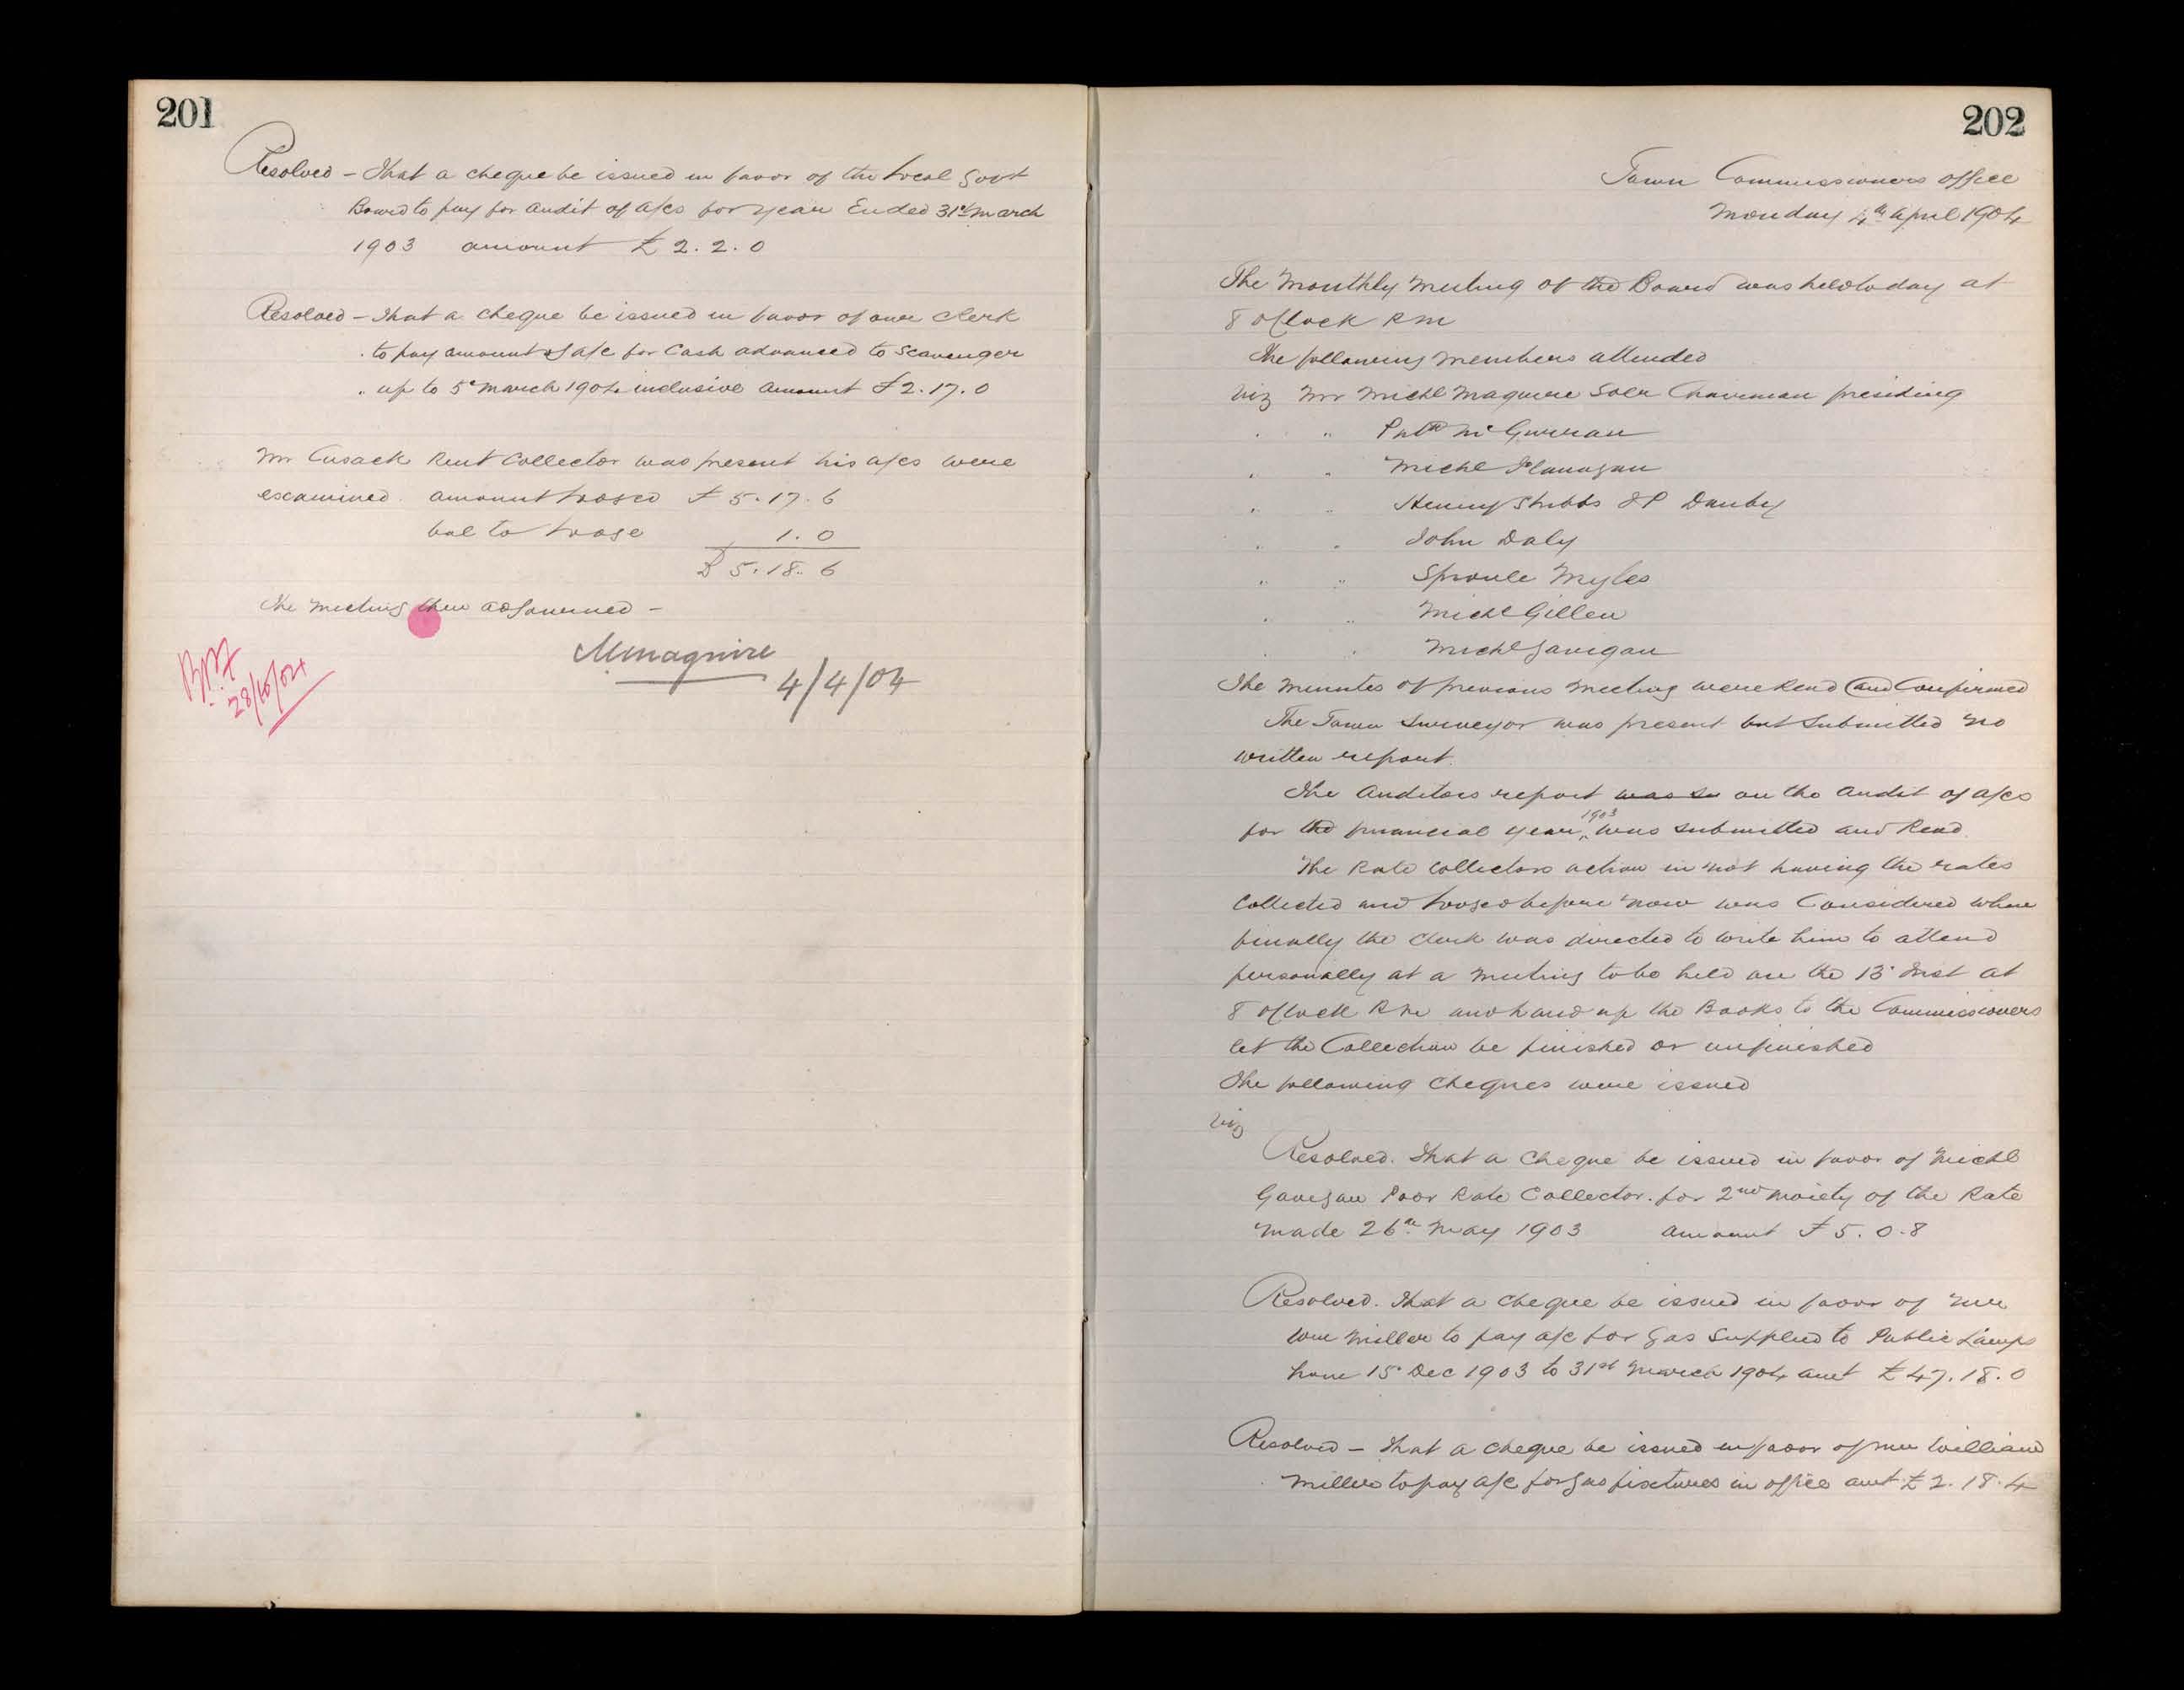 201
Resolved - That a cheque be issued in favor of the Local Govt
Board to pay for audit of a/cs for year Ended 31st March
1903 amount £ 2. 2. 0
Resolved - That a cheque be issued in favor of our Clerk
to pay amount of a/c for Cash advanced to Scavenger
up to 5th March 1904 inclusive amount £ 2. 17. 0
Mr Cusack Rent Collector was present his a/cs were
examined. amount lodged £ 5. 17. 6
bal to lodge 1. 0
£ 5. 18. 6
The meeting then adjourned -
M Maguire
4/4/04
28/10/04
202
Town Commissioners office
Monday 4th April 1904
The Monthly Meeting of the Board was held to day at
8 O'Clock P.M
The following members attended
Viz Mr Michl Maguire Solr Chairman presiding
" " Patk McGurran
" " Michl Flanagan
" " Henry Stubbs J P Danby
" " John Daly
" " Sproule Myles
" " Michl Gillen
" " Michl Gavigan
The Minutes of previous Meeting were Read and Confirmed
The Town Surveyor was present but Submitted no
written report.
The Auditors report was su on the audit of a/cs
for the financial year 1903 was submitted and Read.
The Rate Collectors action in not having the rates
Collected and lodged before now was Considered when
finally the Clerk was directed to write him to attend
personally at a meeting to be held on the 13th Inst at
8 O'Clock P.M and hand up the Books to the Commissioners
let the Collection be finished or unfinished
The following Cheques were issued
Viz
Resolved. That a Cheque be issued in favor of Michl
Gavigan Poor Rate Collector. for 2nd Moiety of the Rate
made 26th May 1903 amount £ 5. 0. 8
Resolved. That a cheque be issued in favor of Mr
Wm Miller to pay a/c for Gas Supplied to Public Lamps
from 15th Dec 1903 to 31st March 1904 amt £ 47. 18. 0
Resolved - That a cheque be issued in favor of Mr William
Miller to pay a/c for Gas fixtures in office amt £ 2. 18. 4